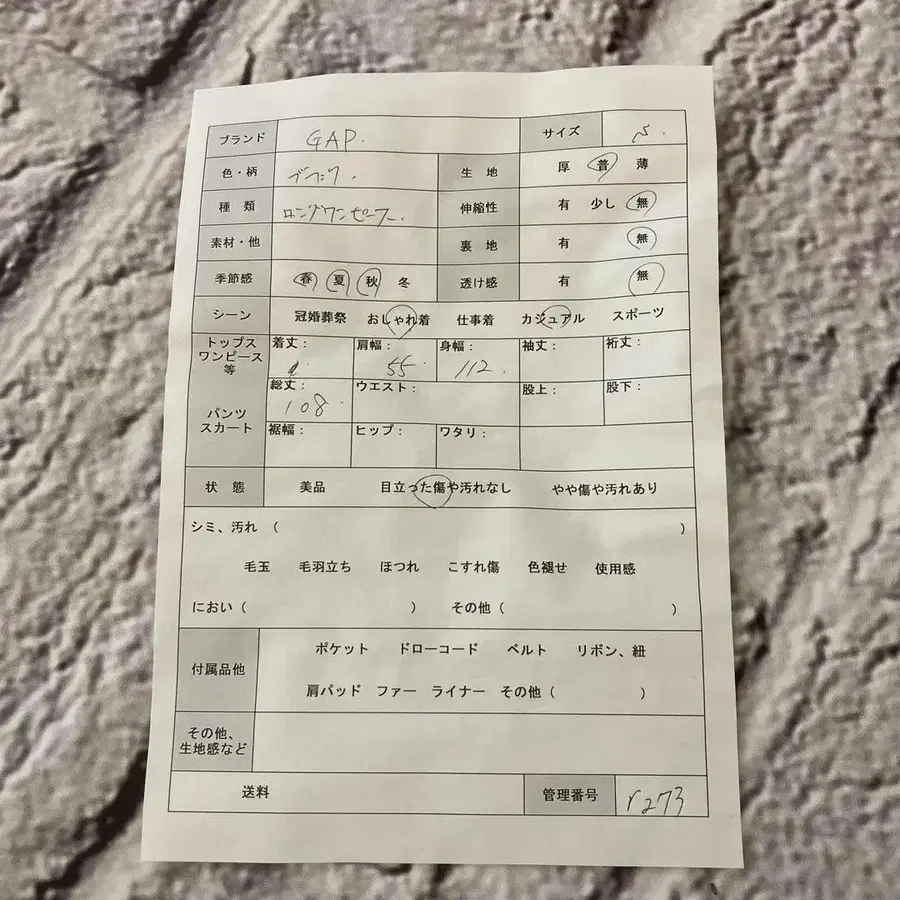 ブランド GAP. サイズ S.
色・柄 ブラック. 生地 厚 普 薄
種類 ロングワンピース. 伸縮性 有 少し 無
素材・他 裏地 有 無
季節感 春 夏 秋 冬 透け感 有 無
シーン 冠婚葬祭 おしゃれ着 仕事着 カジュアル スポーツ
トップス ワンピース 等 着丈： 肩幅： 55. 身幅： 112. 袖丈： 裄丈：
パンツ スカート 総丈： 108. ウエスト： 股上： 股下：
裾幅： ヒップ： ワタリ：
状態 美品 目立った傷や汚れなし やや傷や汚れあり
シミ、汚れ（ ）
毛玉 毛羽立ち ほつれ こすれ傷 色褪せ 使用感
におい（ ） その他（ ）
付属品他 ポケット ドローコード ベルト リボン、紐
肩パッド ファー ライナー その他（ ）
その他、
生地感など
送料 管理番号 r273